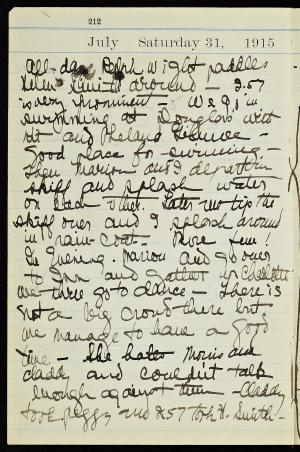 212
July Saturday 31, 1915
All day Ralph Wight paddles
around - 257
is very prominent - We go in
swimming at Douglas's with
Kit and Phelans
Good place for swimming -
Then Marion and I depart in
skiff and splash water
on each other. Later we tip the
skiff over and I splash around
in rain-coat. More fun!
In evening. Marion and I go over
to Inn and gather in Charlotte
we three go to dance - There is
not a big crowd there but
we manage to have a good
time - She hates Morris and
daddy and couldn't talk
enough against them - Daddy
took Peggy and 257 took H. Smith -